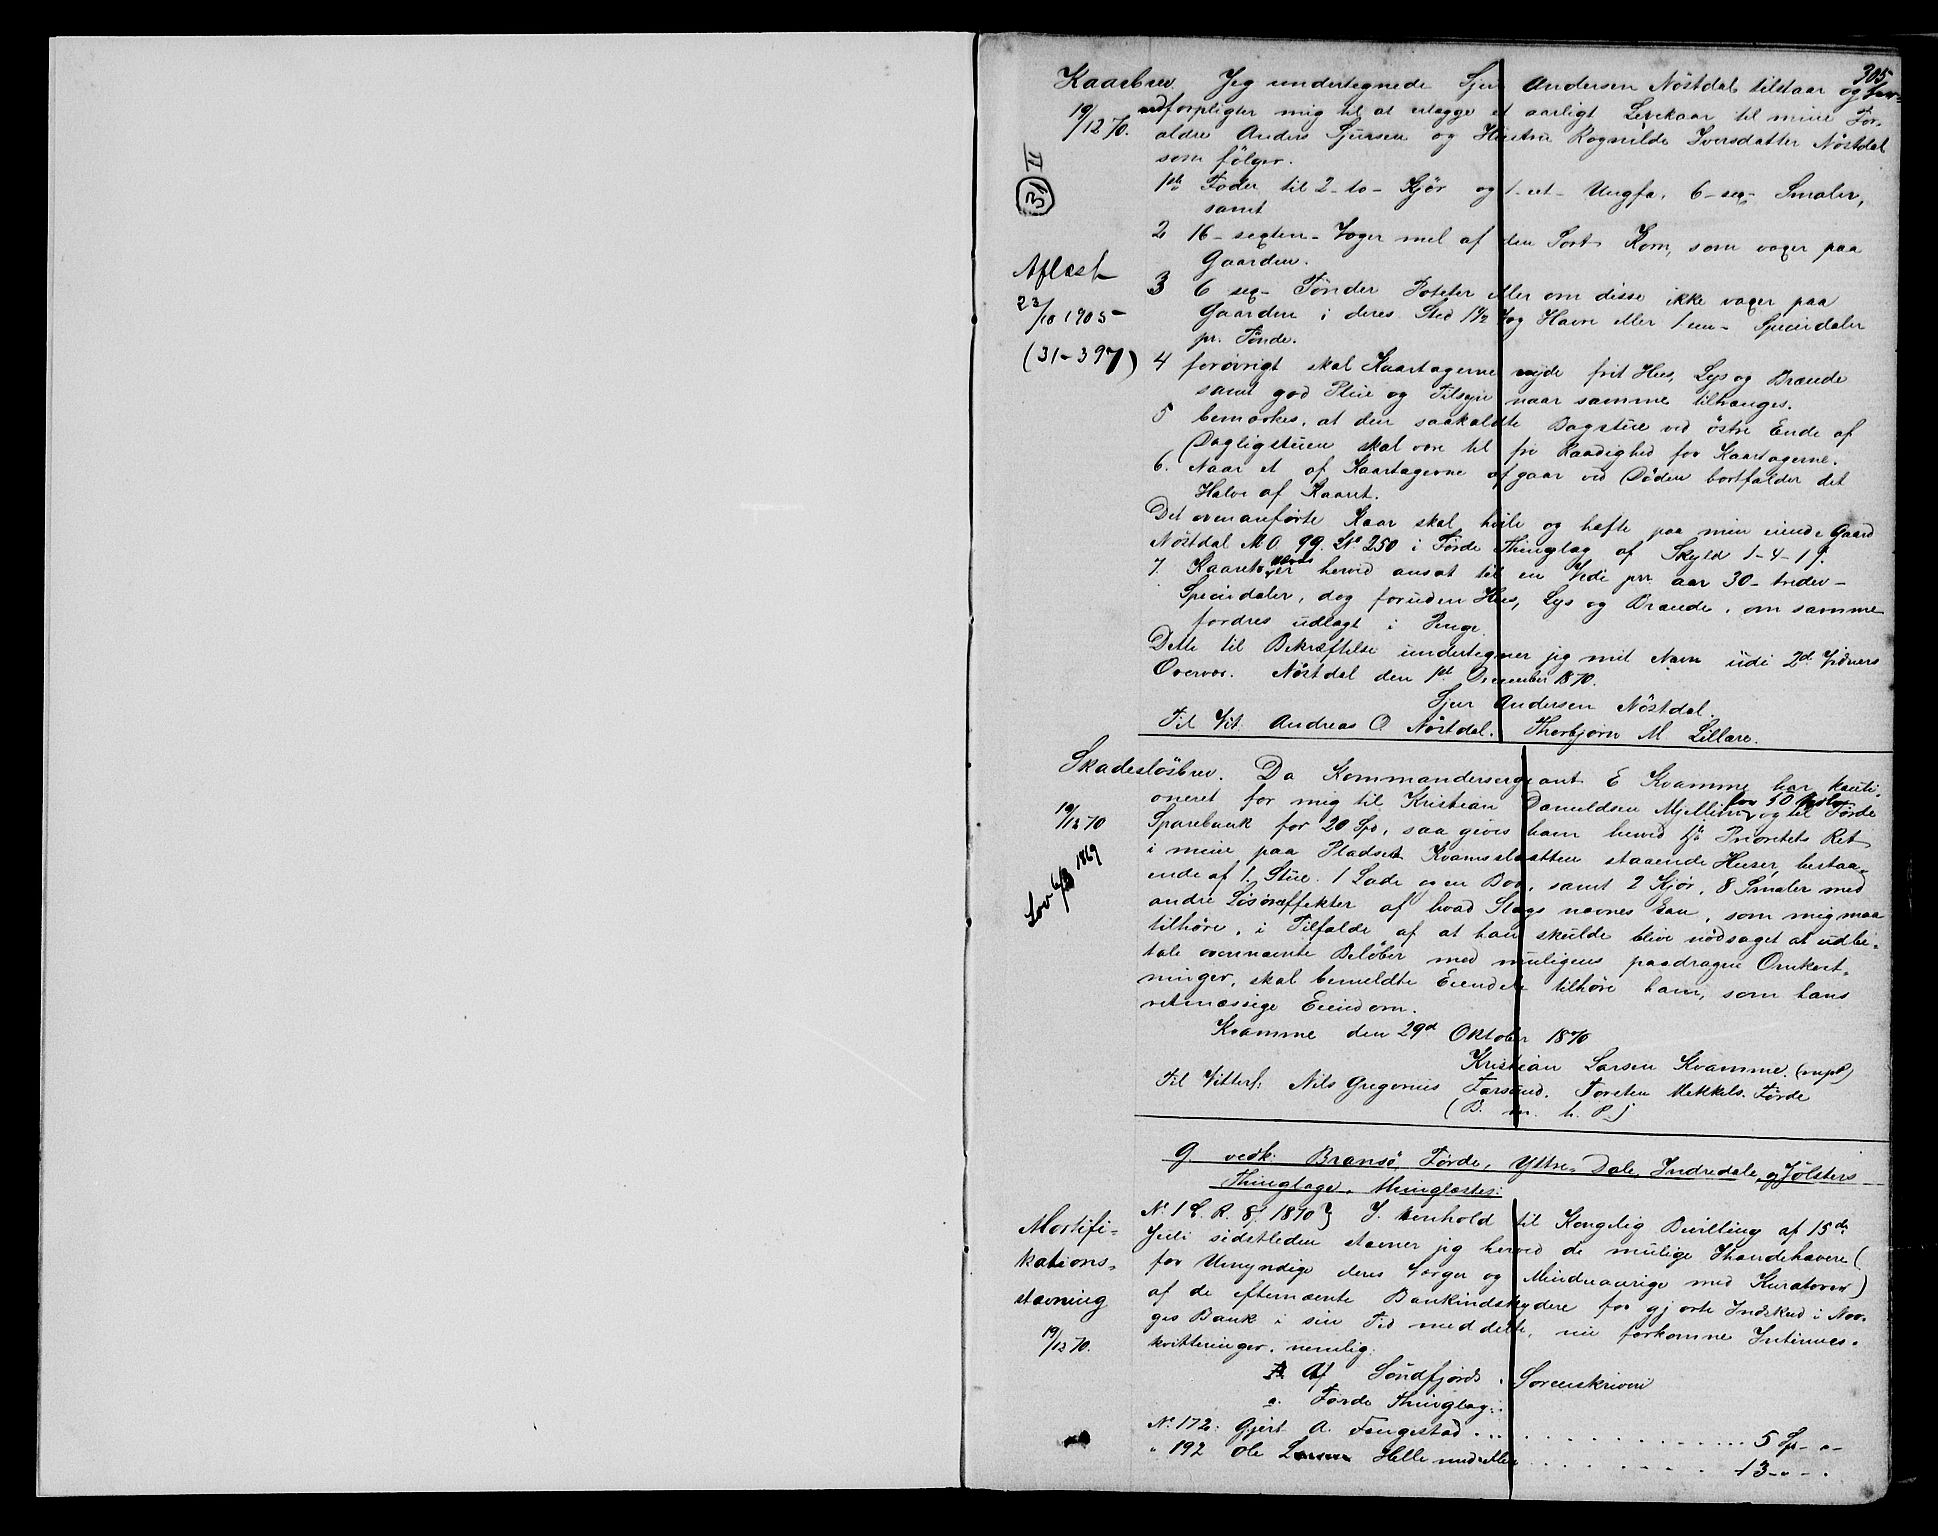 305
Kaarbrev. Jeg undertegnede Sjur Andersen Nöstdal tilstaar og her-
19/12 70. ved forpligter mig til at udlægge et aarligt Levekaar til mine For-
ældre Anders Sjursen og Hustru Rognilde Iversdatter Nöstdal
som fölger.
1st Foder til 2 to Kjör og 1 et Ungfæ, 6 sex Smaler,
samt
2 16 sexten Voger mel af den Sort Korn, som voxer paa
Gaarden.
3 6 sex Tönder Poteter eller om disse ikke voxer paa
Gaarden i deres Sted 1 1/2 Vog Havre eller 1 een Speciedaler
pr. Tönde.
4 forövrigt skal Kaartagerne nyde frit Hus, Lys og Brænde
samt god Pleie og Tilsyn naar samme tiltrænges.
5 bemærkes, at den saakaldte Bagstue ved östre Ende af
Dagligstuen skal være til fri Raadighed for Kaartagerne.
6. Naar et af Kaartagerne afgaar ved Döden bortfalder det
Halve af Kaaret.
Det ovenanförte Kaar skal hvile og hæfte paa min eiende Gaard
Nöstdal M O 99. L№ 250 i Förde Thinglag af Skyld 1-4-17.
7. Kaarets er herved ansat til en Verdi pr. aar 30 tredev
Speciedaler, dog foruden Hus, Lys og Brænde, om samme
fordres udlagt i Penge.
Dette til Bekræftelse undertegner jeg mit Navn udi 2d Vidners
Overvær. Nöstdal den 1st December 1870.
Sjur Andersen Nöstdal.
Til Vit: Andreas O Nöstdal. Thorbjörn M. Lillare.
II (13)
Aflæst
23/10 1905
(31-397)
Skadeslösbrev. Da Kommandersergeant E Kvamme har kauti-
oneret for mig til Kristian Danieldsen Mjellem for 50 og til Förde
19/12 70 Sparebank for 20 Spd, saa gives ham herved 1ste Prioritets Ret
i mine paa Pladset Kvamsslætten staaende Huser, bestaa-
ende af 1. Stue. 1 Lade og en Bod, samt 2 Kjör, 8 Smaler med
andre Lösöreffekter af hvad Slags nævnes kan, som mig maa
tilhöre, i Tilfælde af at han skulde blive nödsaget at udbe-
tale ovennævnte Belöber med muligens paadragne Omkost-
ninger, skal bemeldte Eiendele tilhöre ham, som hans
retmæssige Eiendom.
Lov 1869
Kvamme den 29d Oktober 1870
Kristian Larsen Kvamme. (mpP)
Til Vitterl. Nils Gregorius Farsund. Torsten Mekkels. Förde
(B. m. h. P.)
9. vedk: Bransö, Förde, Yttre Dale, Indredale, og Jölsters
Thinglage, thinglæstes:
Mortifi-
kations-
stævning
19/12 70.
№ 1 L. R. 8/ 1870 I. Henhold til Kongelig Bevilling af 15de
Juli sidstleden stævner jeg herved de mulige Ihændehavere (
for Umyndige deres Værger og Mindreaarige med Kuratorer)
af de efternævnte Bankindskydere for gjorte Indskud i Nor-
ges Bank i sin Tid meddelte, nu forkomne Interims-
kvitteringer, nemlig:
A. Af Söndfjords Sorenskriveri
a. Förde Thinglag:
№ 172. Gjert A. Fongestad . . . . . . 5 Sp - " -
" 192 Ole Larsen Helle med Flere . . . . . . 13 - " -